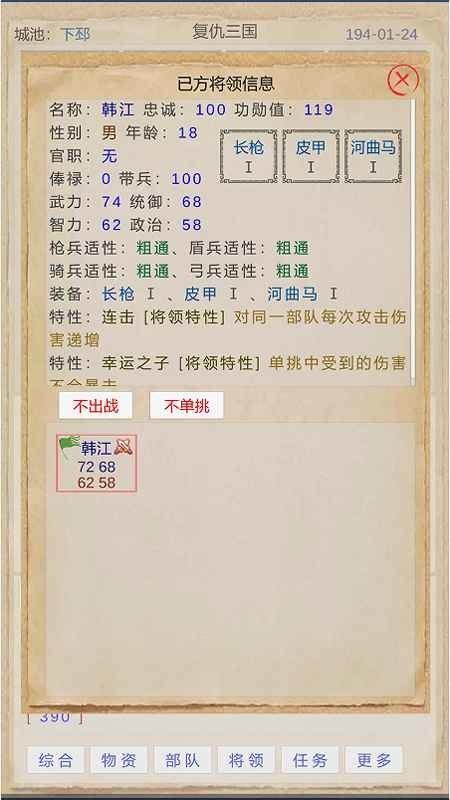 城池：下邳 复仇三国 194-01-24
已方将领信息
名称：韩江 忠诚：100 功勋值：119
性别：男 年龄：18
官职：无
俸禄：0 带兵：100
武力：74 统御：68
智力：62 政治：58
长枪 皮甲 河曲马
I I I
枪兵适性：粗通、盾兵适性：粗通
骑兵适性：粗通、弓兵适性：粗通
装备：长枪 I 、皮甲 I 、河曲马 I
特性：连击 [将领特性] 对同一部队每次攻击伤
害递增
特性：幸运之子 [将领特性] 单挑中受到的伤害
不会暴击
不出战 不单挑
韩江
72 68
62 58
[ 390 ]
综合 物资 部队 将领 任务 更多